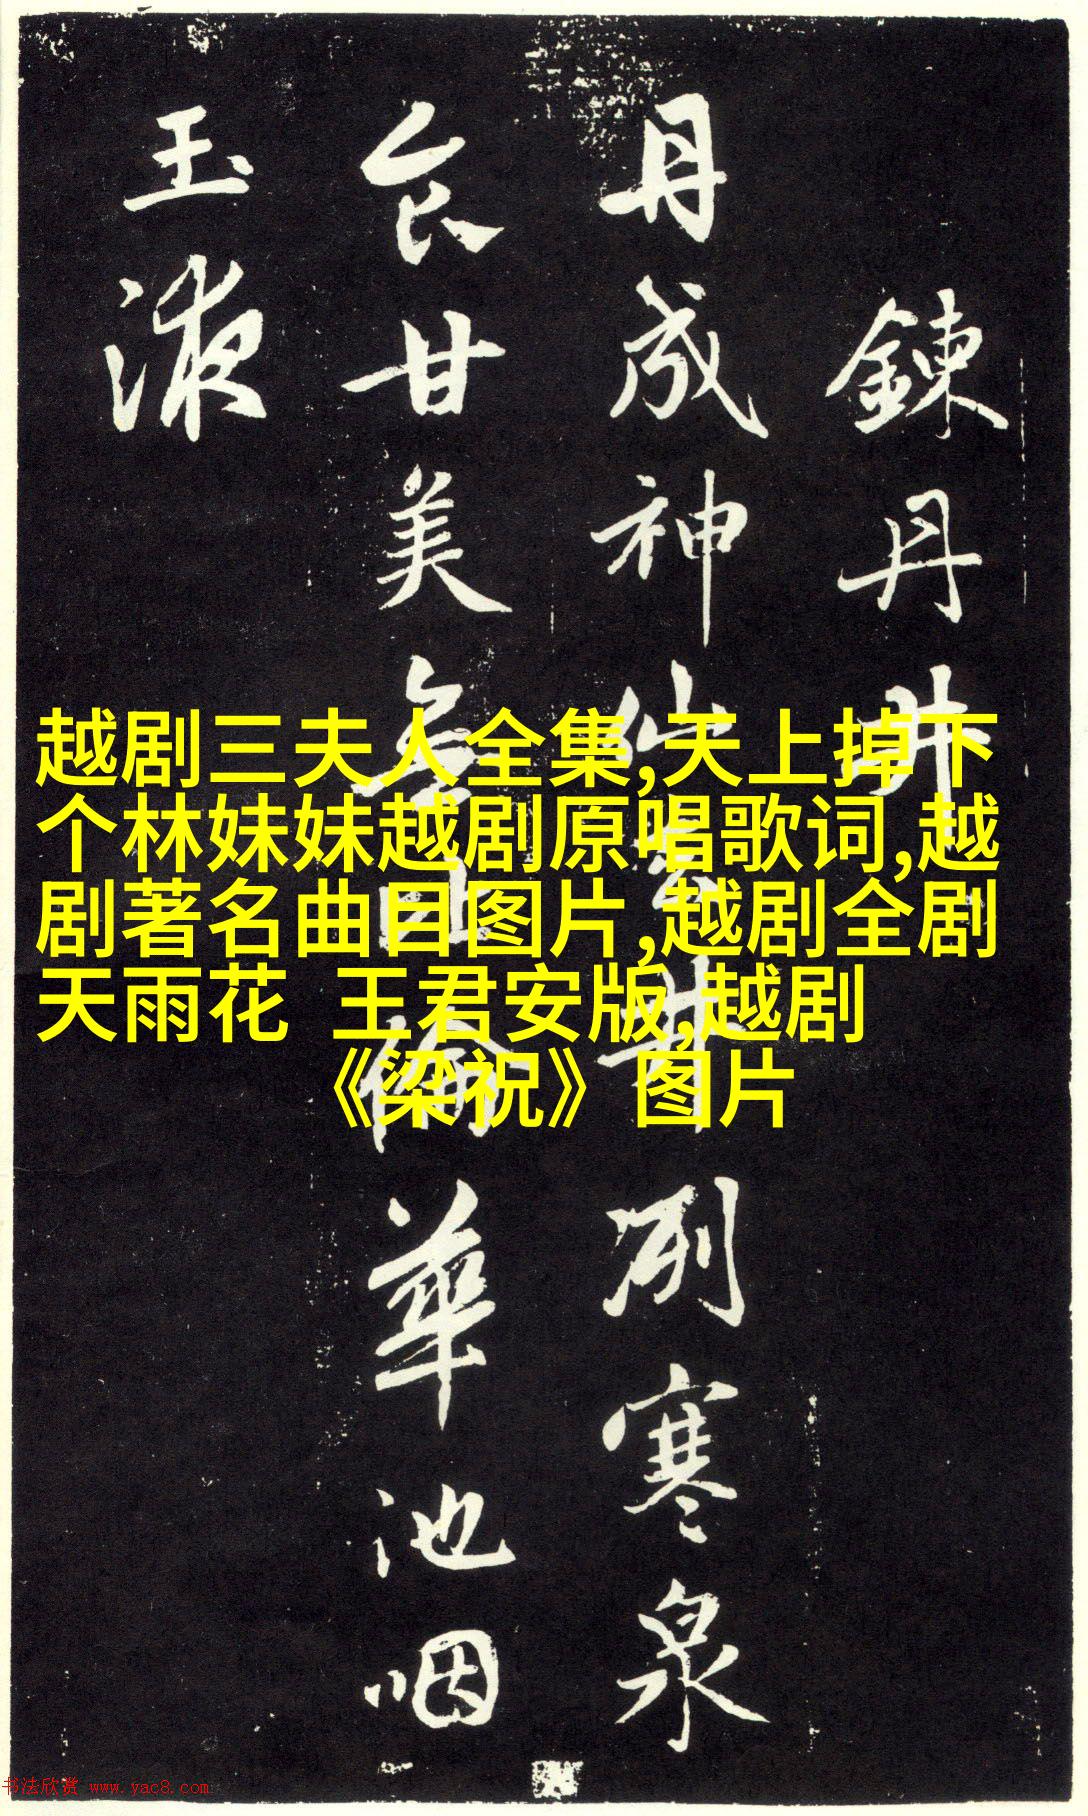 鍊丹井
丹成神仙井冽寒泉
食甘美無倫華池咽
玉液
越剧三夫人全集,天上掉下
个林妹妹越剧原唱歌词,越
剧著名曲目图片,越剧全剧
天雨花 王君安版,越剧
《梁祝》图片
书法欣赏 www.yac8.com